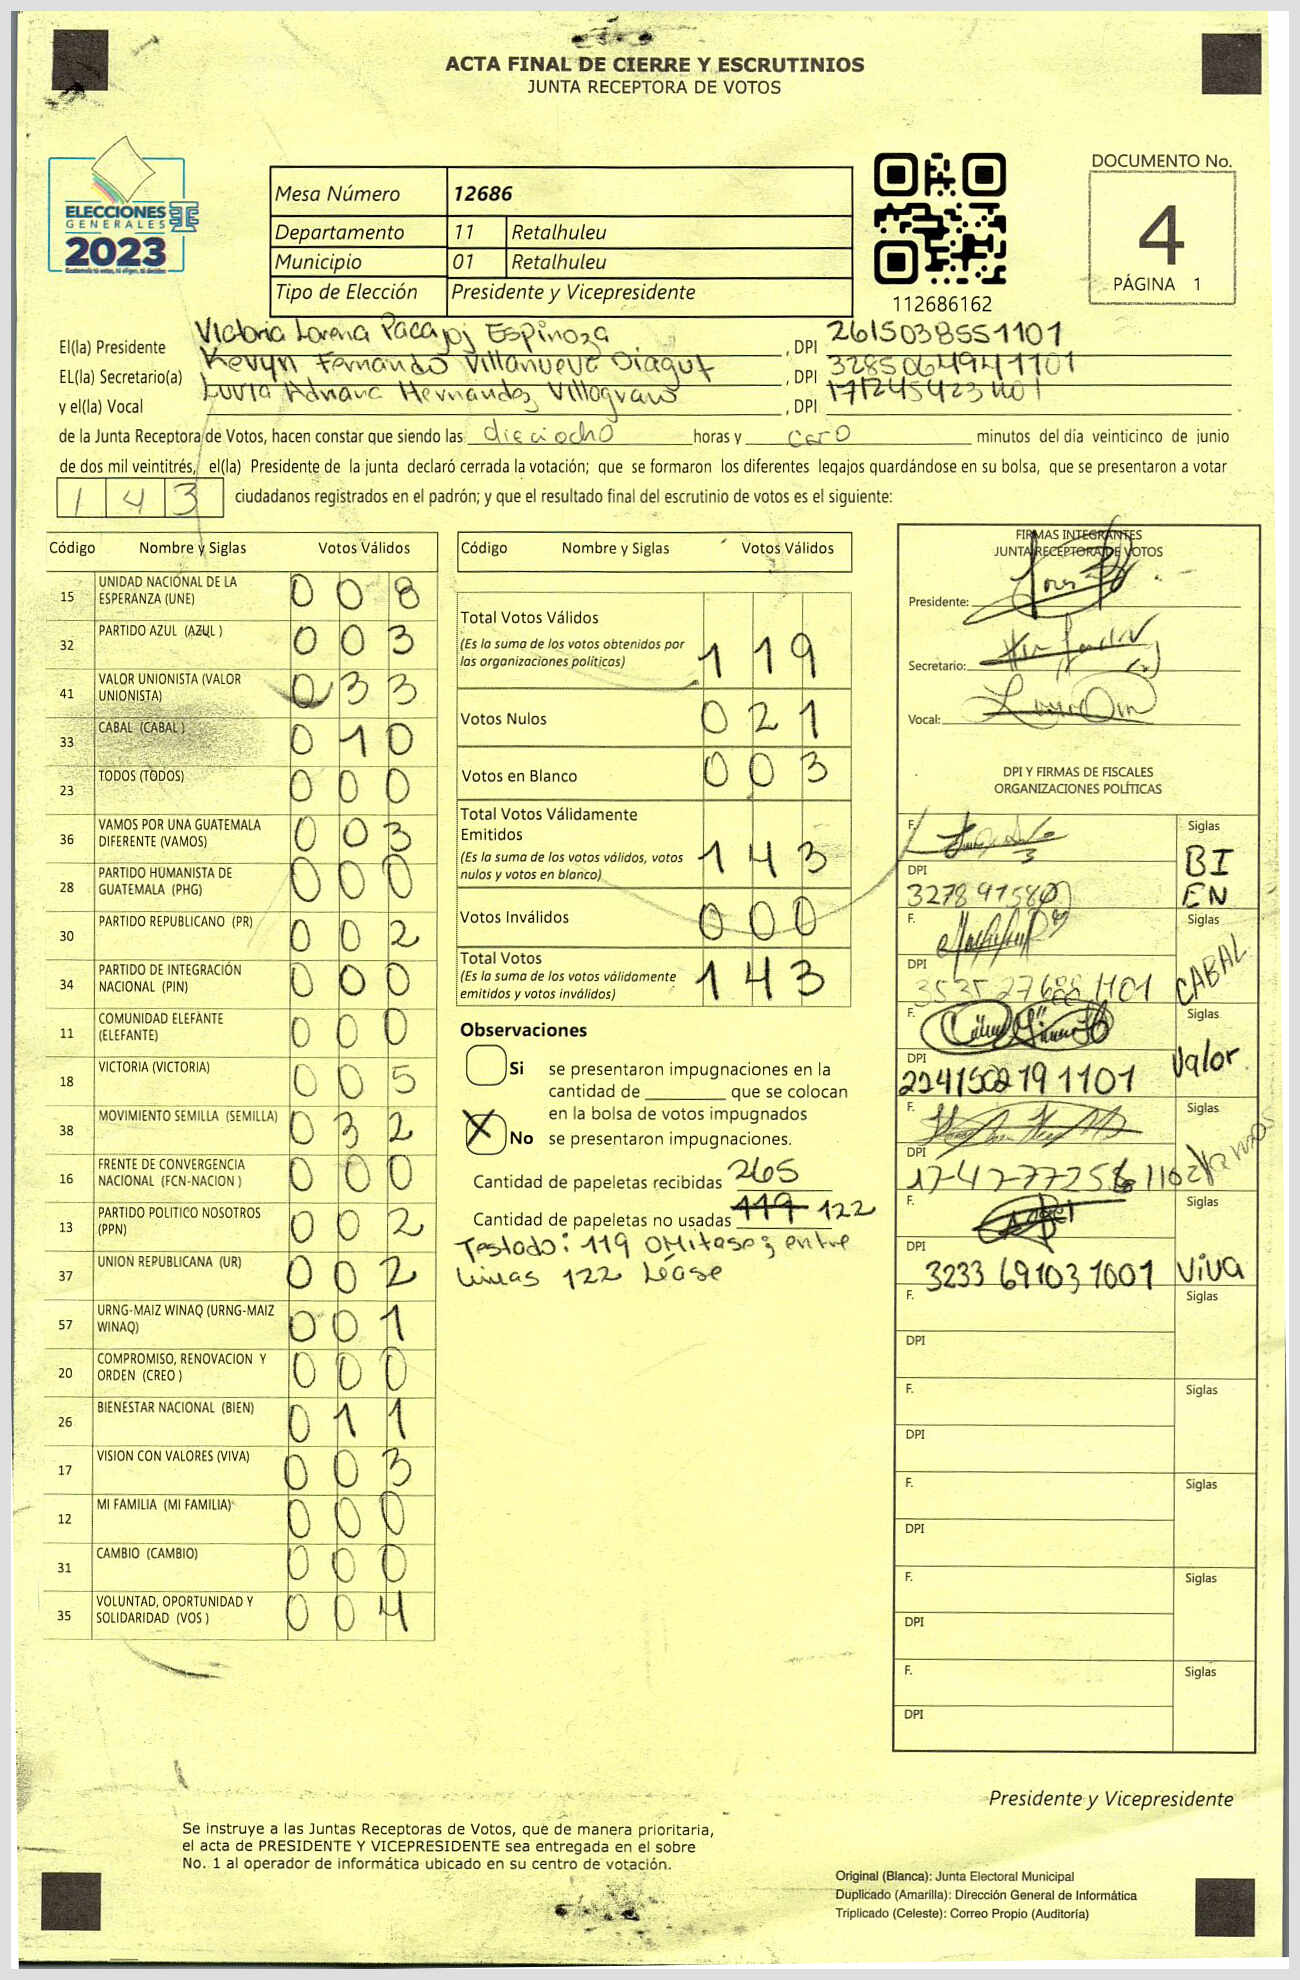 ACTA FINAL DE CIERRE Y ESCRUTINIOS
JUNTA RECEPTORA DE VOTOS
ELECCIONES
GENERALES
2023
Guatemala tú votas, tú eliges, tú decides
Mesa Número 12686
Departamento 11 Retalhuleu
Municipio 01 Retalhuleu
Tipo de Elección Presidente y Vicepresidente
112686162
DOCUMENTO No.
4
PÁGINA 1
El(la) Presidente Victoria Lorena Pacajoj Espinoza, DPI 2615038551101
EL(la) Secretario(a) Kevyn Fernando Villanueva, DPI 3285064941101
y el(la) Vocal Adriana Hernandez Villagrano, DPI
de la Junta Receptora de Votos, hacen constar que siendo las dieciocho horas y cero minutos del día veinticinco de junio
de dos mil veintitrés, el(la) Presidente de la junta declaró cerrada la votación; que se formaron los diferentes legajos guardándose en su bolsa, que se presentaron a votar
143 ciudadanos registrados en el padrón; y que el resultado final del escrutinio de votos es el siguiente:
Código Nombre y Siglas Votos Válidos
15 UNIDAD NACIONAL DE LA ESPERANZA (UNE) 008
32 PARTIDO AZUL (AZUL ) 003
41 VALOR UNIONISTA (VALOR UNIONISTA) 033
33 CABAL (CABAL ) 010
23 TODOS (TODOS) 000
36 VAMOS POR UNA GUATEMALA DIFERENTE (VAMOS) 003
28 PARTIDO HUMANISTA DE GUATEMALA (PHG) 000
30 PARTIDO REPUBLICANO (PR) 002
34 PARTIDO DE INTEGRACIÓN NACIONAL (PIN) 000
11 COMUNIDAD ELEFANTE (ELEFANTE) 000
18 VICTORIA (VICTORIA) 005
38 MOVIMIENTO SEMILLA (SEMILLA) 032
16 FRENTE DE CONVERGENCIA NACIONAL (FCN-NACION ) 000
13 PARTIDO POLITICO NOSOTROS (PPN) 002
37 UNION REPUBLICANA (UR) 002
57 URNG-MAIZ WINAQ (URNG-MAIZ WINAQ) 001
20 COMPROMISO, RENOVACION Y ORDEN (CREO ) 000
26 BIENESTAR NACIONAL (BIEN) 011
17 VISION CON VALORES (VIVA) 003
12 MI FAMILIA (MI FAMILIA) 000
31 CAMBIO (CAMBIO) 000
35 VOLUNTAD, OPORTUNIDAD Y SOLIDARIDAD (VOS ) 004
Código Nombre y Siglas Votos Válidos
Total Votos Válidos
(Es la suma de los votos obtenidos por
las organizaciones políticas) 119
Votos Nulos 021
Votos en Blanco 003
Total Votos Válidamente
Emitidos
(Es la suma de los votos válidos, votos
nulos y votos en blanco) 143
Votos Inválidos 000
Total Votos
(Es la suma de los votos válidamente
emitidos y votos inválidos) 143
Observaciones
Si se presentaron impugnaciones en la
cantidad de ________ que se colocan
en la bolsa de votos impugnados
X No se presentaron impugnaciones.
Cantidad de papeletas recibidas 265
Cantidad de papeletas no usadas 119 122
Testado: 119 Omitase; entre
lineas 122 Léase
FIRMAS INTEGRANTES
JUNTA RECEPTORA DE VOTOS
Presidente:
Secretario:
Vocal:
DPI Y FIRMAS DE FISCALES
ORGANIZACIONES POLÍTICAS
F. Siglas
BIEN
DPI
F. Siglas
CABAL
DPI
F. Siglas
Valor
DPI 2241502191101
F. Siglas
DPI
F. Siglas
DPI 3233 69103 1001 Viva
F. Siglas
DPI
F. Siglas
DPI
F. Siglas
DPI
F. Siglas
DPI
F. Siglas
DPI
Presidente y Vicepresidente
Se instruye a las Juntas Receptoras de Votos, que de manera prioritaria,
el acta de PRESIDENTE Y VICEPRESIDENTE sea entregada en el sobre
No. 1 al operador de informática ubicado en su centro de votación.
Original (Blanca): Junta Electoral Municipal
Duplicado (Amarilla): Dirección General de Informática
Triplicado (Celeste): Correo Propio (Auditoría)